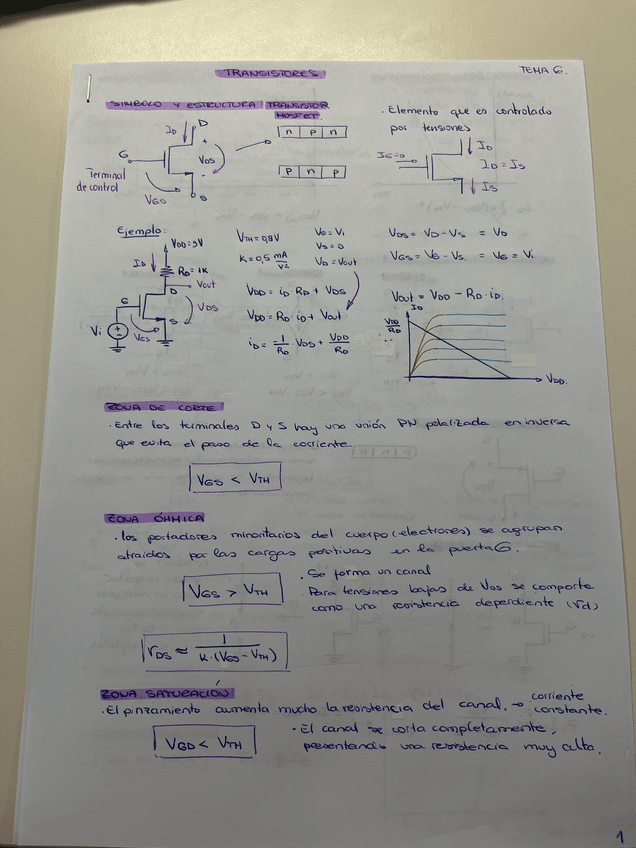 TRANSISTORES
TEMA 6.
SIMBOLO Y ESTRUCTURA TRANSISTOR MOSFET.
ID
D
+
VDS
-
G
Terminal de control
VGS
S
n p n
p n p
· Elemento que es controlado
por tensiones
IG=0
ID
ID = IS
IS
Ejemplo:
VDD=5V
ID
RD=1K
Vout
D
G
VDS
S
Vi
VGS
VTH=0,8V
K=0,5 mA/V²
VG=Vi
VS=0
VD=Vout
VDD= iD RD + VDS
VDD= RD iD + Vout
iD= 1/RD VDS + VDD/RD
VDS= VD-VS = VD
VGS= VG-VS. = VG = Vi
Vout = VDD - RD·iD.
ID
VDD/RD
VDD.
ZONA DE CORTE
· Entre los terminales D y S hay una unión PN polarizada en inversa
que evita el paso de la corriente.
VGS < VTH
ZONA ÓHMICA
· los portadores minoritarios del cuerpo (electrones) se agrupan
atraídos por las cargas positivas en la puerta G.
VGS > VTH
· Se forma un canal
Para tensiones bajas de VDS se comporte
como una resistencia dependiente (rd)
rDS ≈ 1/K·(VGS-VTH)
ZONA SATURACIÓN
· El pinzamiento aumenta mucho la resistencia del canal. → corriente constante.
VGD < VTH
· El canal se corta completamente,
presentando una resistencia muy alta.
1